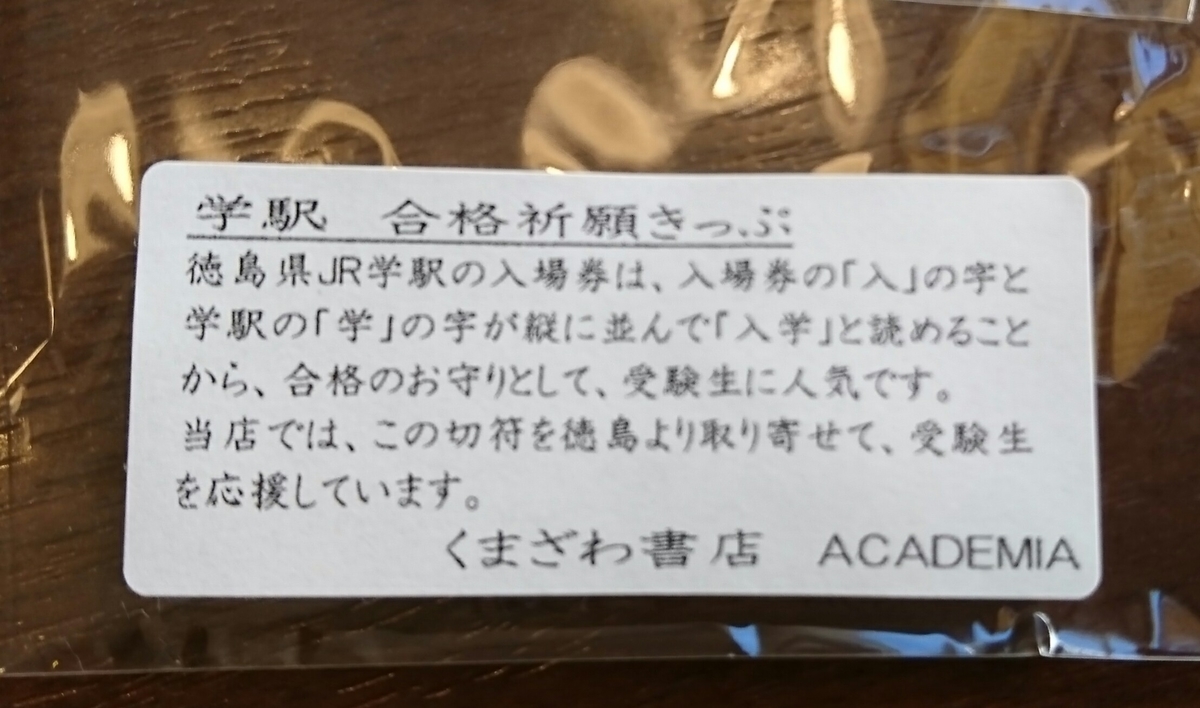 学駅　合格祈願きっぷ
徳島県JR学駅の入場券は、入場券の「入」の字と
学駅の「学」の字が縦に並んで「入学」と読めること
から、合格のお守りとして、受験生に人気です。
当店では、この切符を徳島より取り寄せて、受験生
を応援しています。
くまざわ書店　ACADEMIA